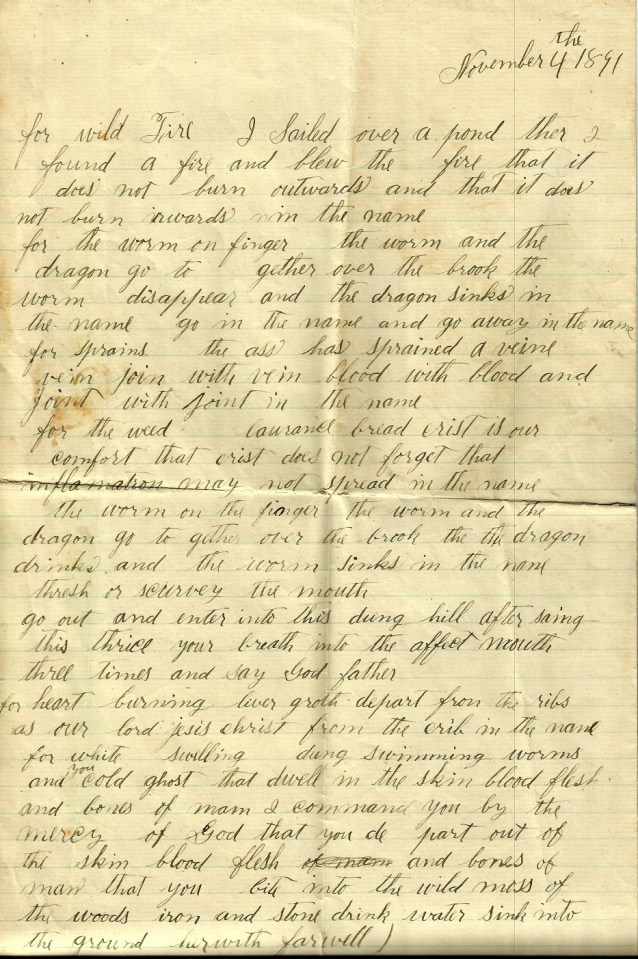 November 4 the 1891
for wild Fire I Sailed over a pond ther I
found a fire and blew the fire that it
does not burn outwards and that it does
not burn inwards in the name
for the worm on finger the worm and the
dragon go to gether over the brook the
worm disappear and the dragon sinks in
the name go in the name and go away in the name
for sprains the ass has sprained a veine
vein join with vein blood with blood and
joint with joint in the name
for the weed bread crist is our
comfort that crist does not forget that
inflamation may not spread in the name
the worm on the finger the worm and the
dragon go to gether over the brook the the dragon
drinks and the worm sinks in the name
thresh or scurvey the mouth
go out and enter into this dung hill after saing
this thrice your breath into the affect mouth
three times and say God father
for heart burning liver groth depart fron the ribs
as our lord jesis christ from the crib in the name
for white swilling dung swimming worms
and you cold ghost that dwell in the skin blood flesh
and bones of mam I command you by the
mercy of God that you de part out of
the skin blood flesh of mam and bones of
man that you bite into the wild moss of
the woods iron and stone drink water sink into
the ground herwith farwell )